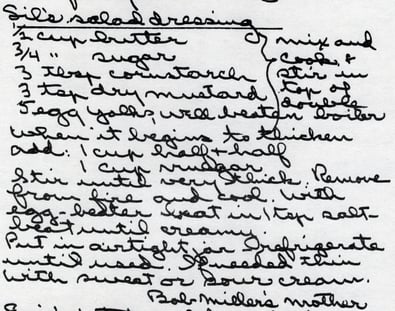 Sil's salad dressing
1/2 cup butter
3/4 " sugar
3 tbsp cornstarch
3 tsp dry mustard
5 egg yolks, well beaten
mix and
cook &
stir in
top of
double
boiler
when it begins to thicken
add: 1 cup half & half
1 cup vinegar
Stir until very thick. Remove
from fire and cool. With
egg-beater beat in 1 tsp salt-
beat until creamy.
Put in airtight jar & refrigerate
until used. If needed thin
with sweet or sour cream.
Bob Miller's mother